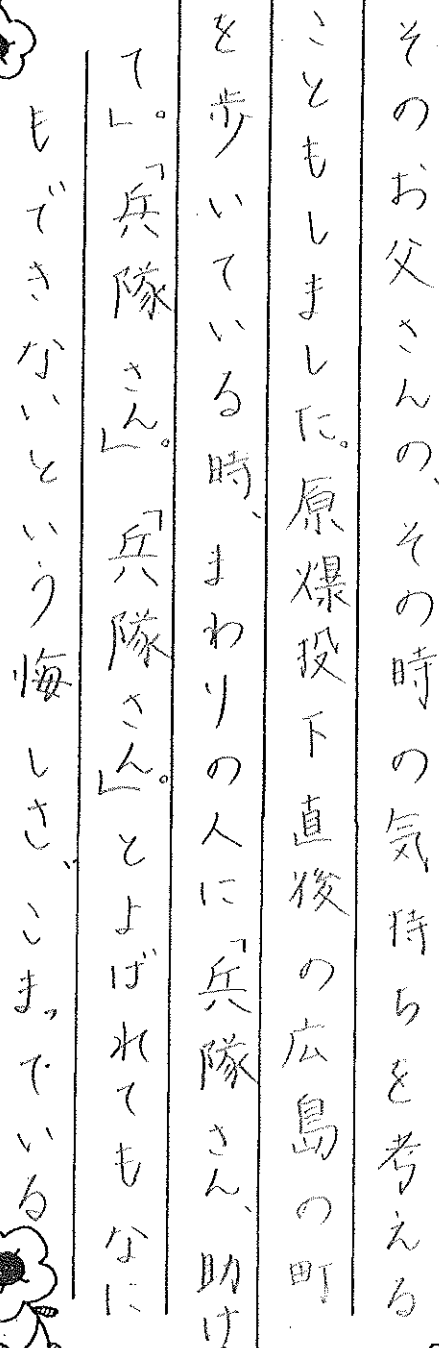 そのお父さんの、その時の気持ちを考える
こともしました。原爆投下直後の広島の町
を歩いている時、まわりの人に「兵隊さん、助け
て」。「兵隊さん」。「兵隊さん」。とよばれてもなに
もできないという悔しさ、こまっている